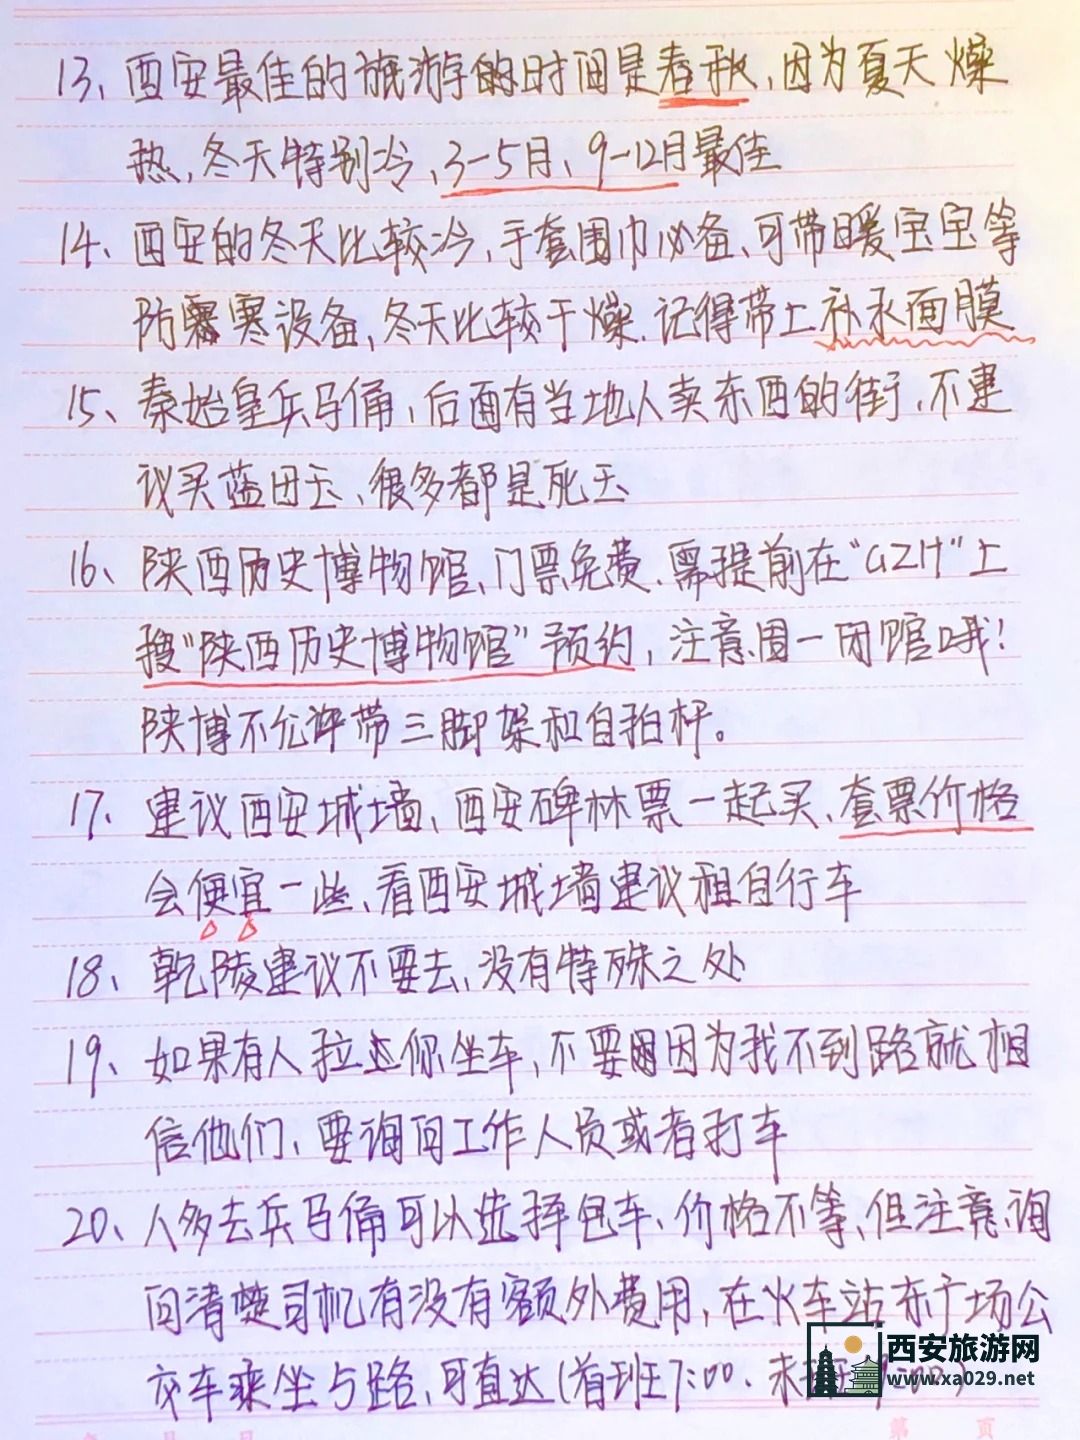 13、西安最佳的旅游的时间是春秋,因为夏天燥
热,冬天特别冷、3-5月、9-12月最佳
14、西安的冬天比较冷,手套围巾必备、可带暖宝宝等
防寒设备,冬天比较干燥.记得带上补水面膜
15、秦始皇兵马俑,后面有当地人卖东西的街,不建
议买蓝田玉、很多都是死玉
16、陕西历史博物馆、门票免费.需提前在"GZH"上
搜"陕西历史博物馆"预约,注意周一闭馆哦!
陕博不允许带三脚架和自拍杆。
17、建议西安城墙、西安碑林票一起买、套票价格
会便宜一些、看西安城墙建议租自行车
18、乾陵建议不要去,没有特殊之处
19、如果有人拉近你坐车,不要因为找不到路就相
信他们、要询问工作人员或者打车
20、人多去兵马俑可以选择包车、价格不等、但注意询
问清楚司机有没有额外费用,在火车站东广场公
交车乘坐5路,可直达(首班7:00.末班
西安旅游网
www.xa029.net
第 页
年 月 日